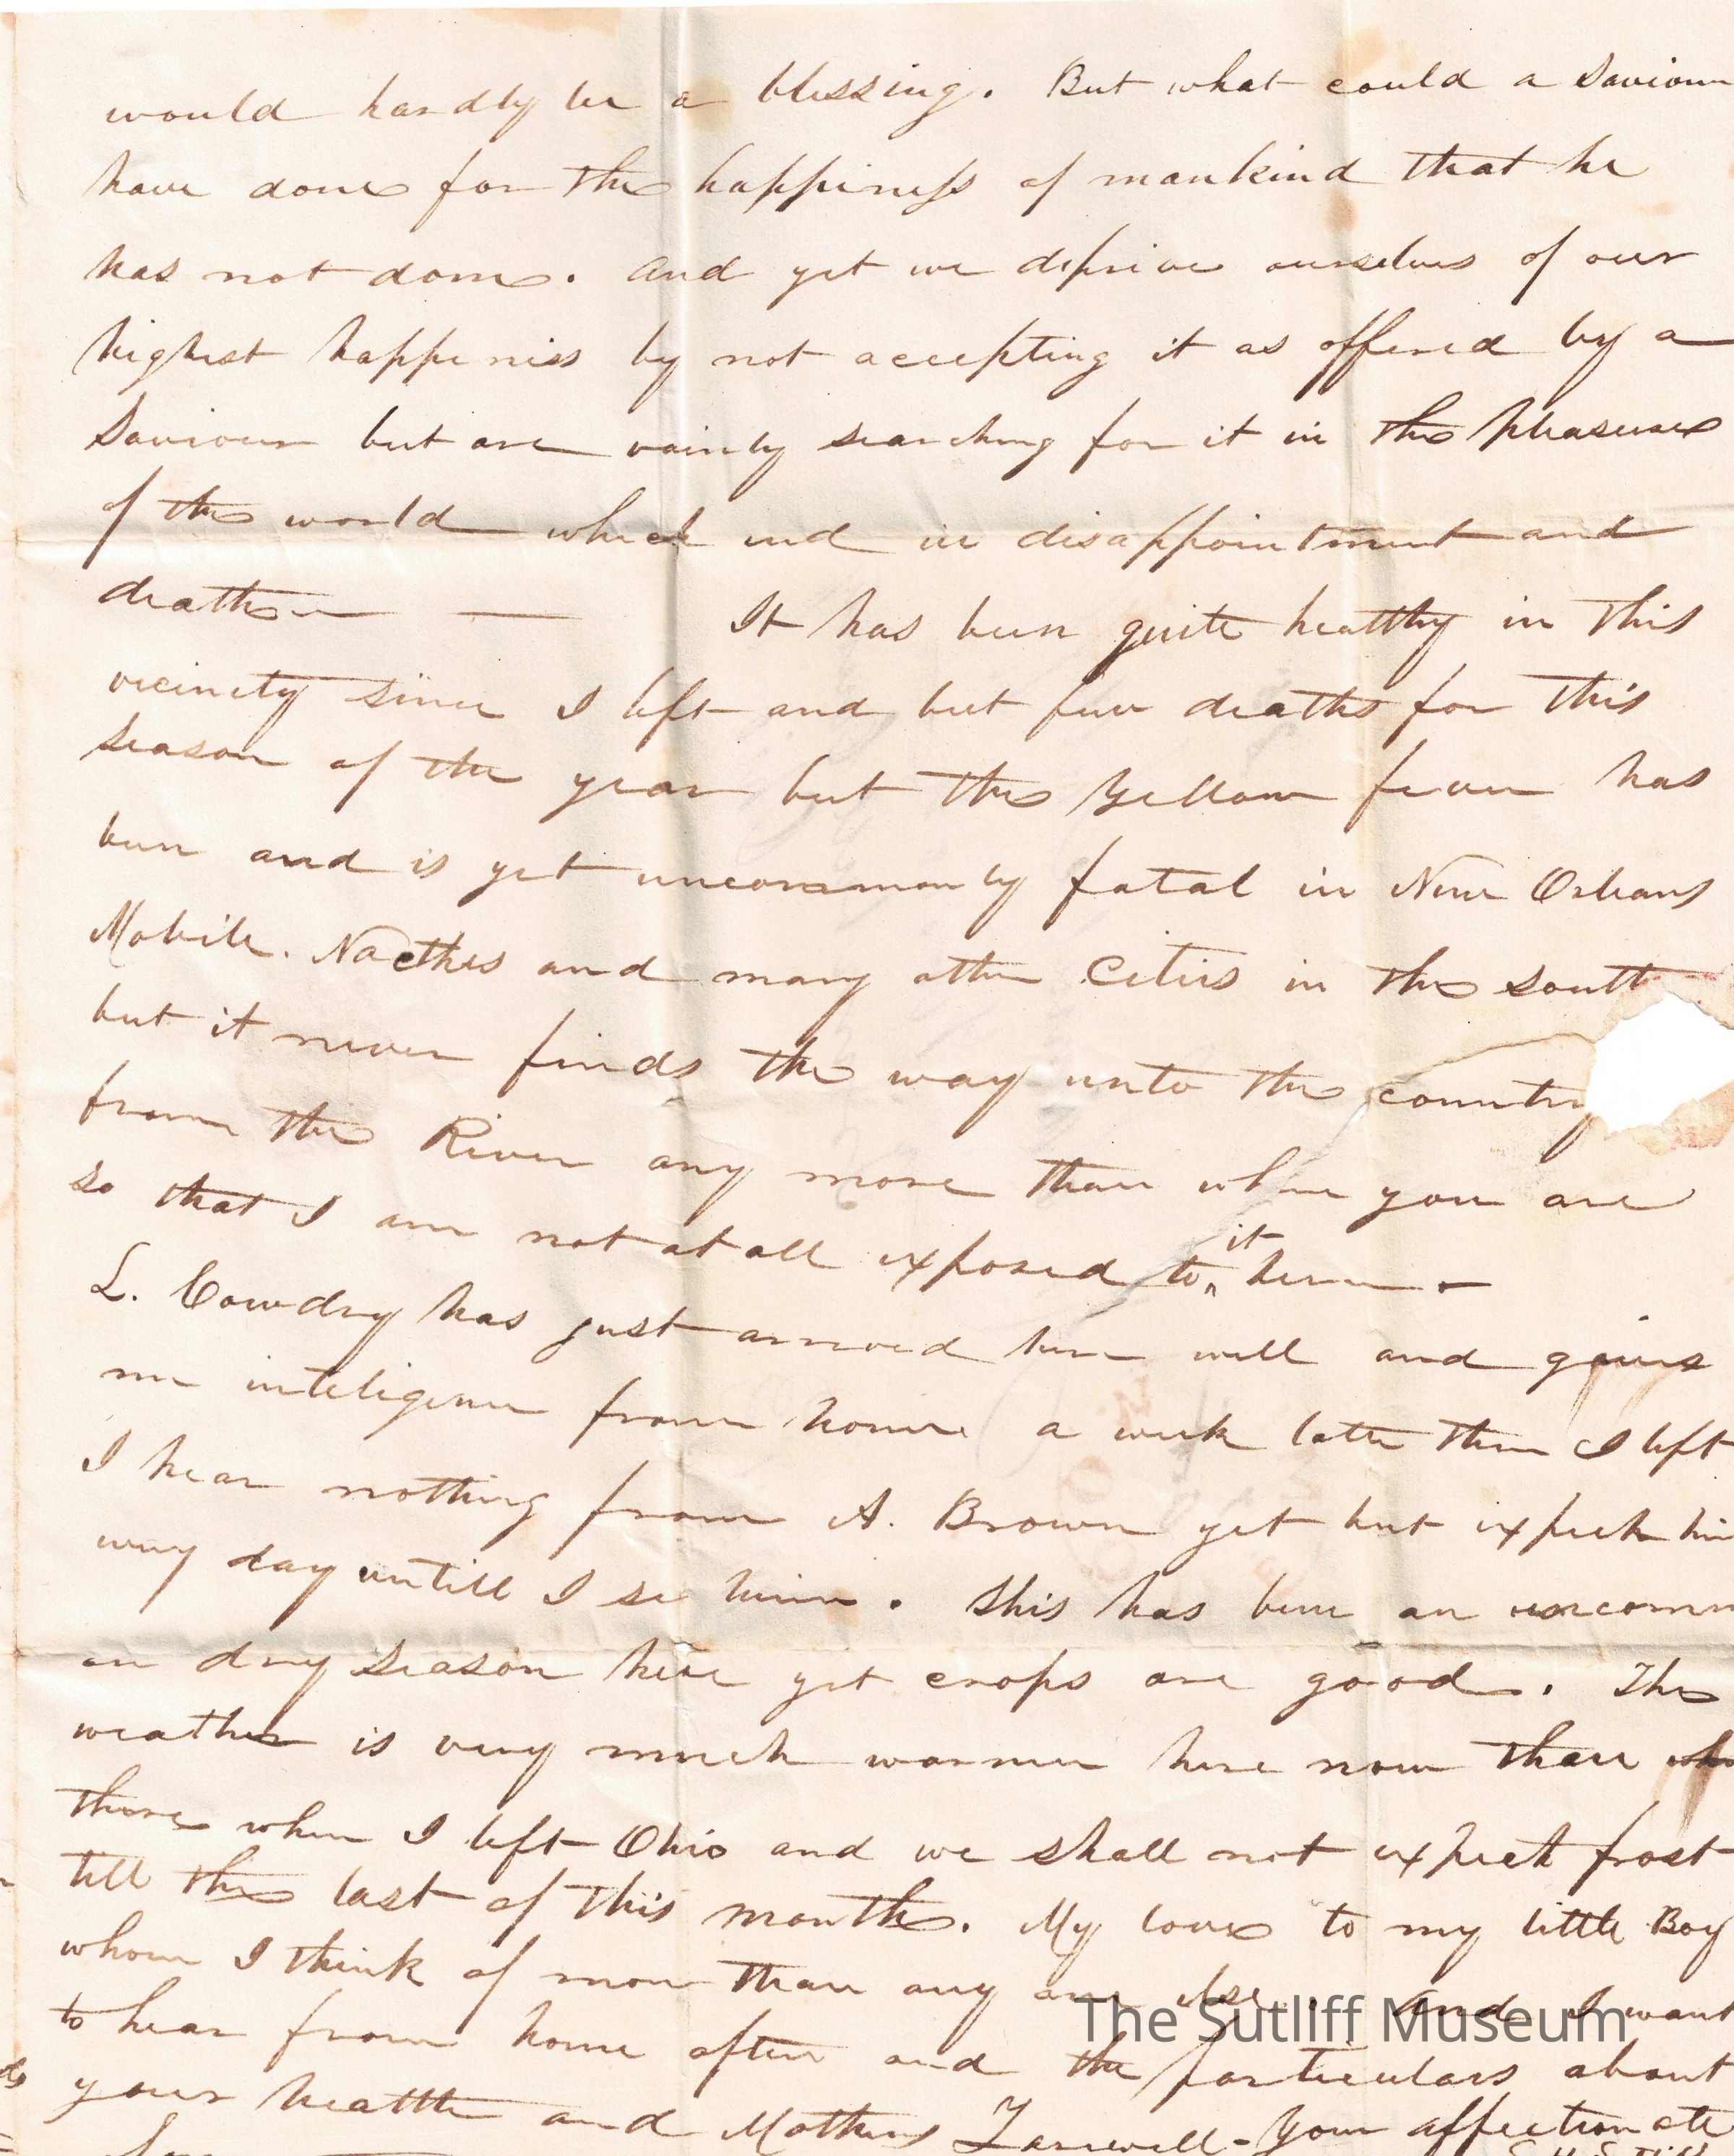 would hardly be a blessing. But what could a Saviour
have done for the happiness of mankind that he
has not done. and yet we deprive ourselves of our
highest happeniss by not accepting it as offered by a
Saviour but are vainly searching for it in the pleasures
of the world which end in disappointment and
death — It has been quite healthy in this
vicinety since I left and but few deaths for this
season of the year but the Yellow fever has
been and is yet uncommonly fatal in New Orleans
Mobile. Nacthes and many other Cities in the South
but it never finds the way unto the country
from the River any more than where you are
so that I am not at all exposed to it here —
L. Cowdry has just arrived here well and gives
me inteligence from home a week later than I left
I hear nothing from A. Brown yet but expect him
every day untill I se him. This has been an uncomm
on dry season here yet crops are good. The
weather is very much warmer here now than
there when I left Ohio and we shall not expect frost
till the last of this month. My love to my little Boy
whom I think of more than any one else. And I want
to hear from home often and the particulars about
your health and Mothers Farewell - Your affectionate
The Sutliff Museum